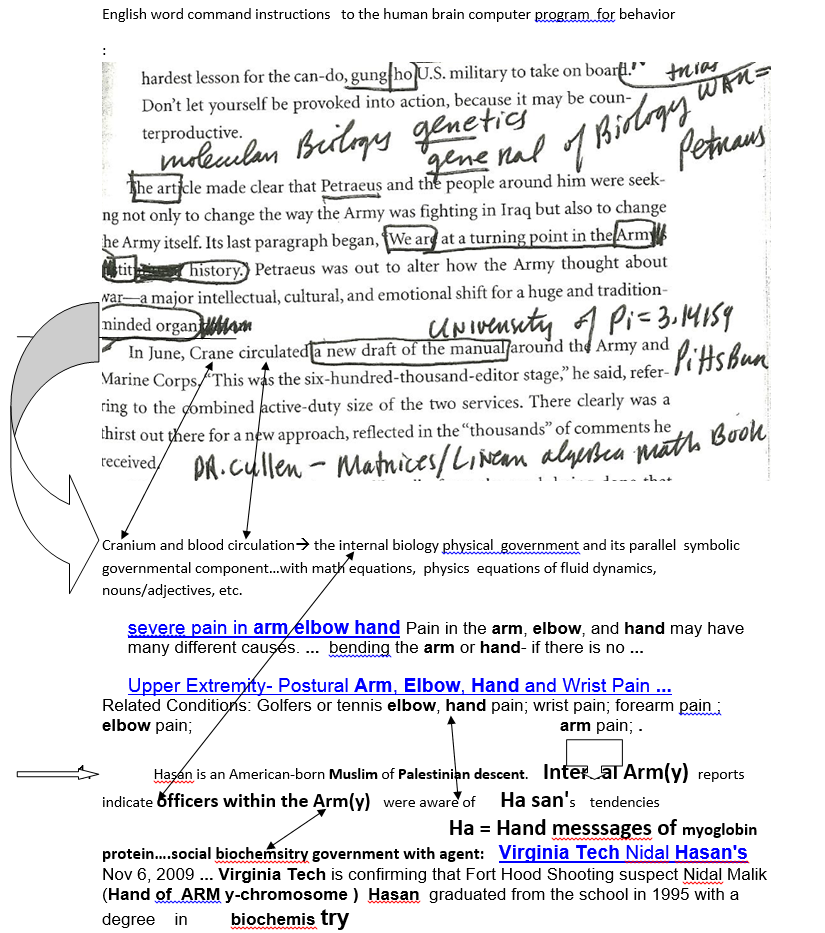 English word command instructions to the human brain computer program for behavior
:
hardest lesson for the can-do, gung ho U.S. military to take on board."
Don't let yourself be provoked into action, because it may be coun- WAR=
terproductive.
molecular Biology genetics
general of Biology Petraus
The article made clear that Petraeus and the people around him were seek-
ng not only to change the way the Army was fighting in Iraq but also to change
he Army itself. Its last paragraph began, "We are at a turning point in the Army
stit history. Petraeus was out to alter how the Army thought about
war—a major intellectual, cultural, and emotional shift for a huge and tradition-
minded organ
University of Pi = 3.14159
In June, Crane circulated a new draft of the manual around the Army and
PittsBur
Marine Corps. "This was the six-hundred-thousand-editor stage," he said, refer-
ring to the combined active-duty size of the two services. There clearly was a
thirst out there for a new approach, reflected in the "thousands" of comments he
received.
DR. Cullen - Matrices/Linear algebra math Book
Cranium and blood circulation→ the internal biology physical government and its parallel symbolic
governmental component…with math equations, physics equations of fluid dynamics,
nouns/adjectives, etc.
severe pain in arm elbow hand Pain in the arm, elbow, and hand may have
many different causes. ... bending the arm or hand- if there is no ...
Upper Extremity- Postural Arm, Elbow, Hand and Wrist Pain ...
Related Conditions: Golfers or tennis elbow, hand pain; wrist pain; forearm pain ;
elbow pain; arm pain; .
Hasan is an American-born Muslim of Palestinian descent. Internal Arm(y) reports
indicate officers within the Arm(y) were aware of Ha san's tendencies
Ha = Hand messsages of myoglobin
protein....social biochemsitry government with agent: Virginia Tech Nidal Hasan's
Nov 6, 2009 ... Virginia Tech is confirming that Fort Hood Shooting suspect Nidal Malik
(Hand of ARM y-chromosome ) Hasan graduated from the school in 1995 with a
degree in biochemis try